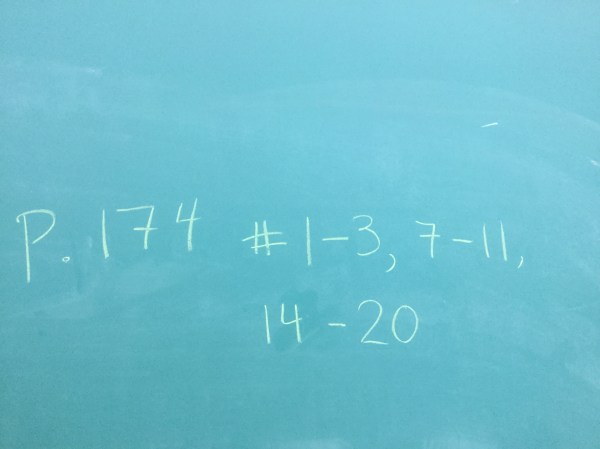 P. 174 #1-3, 7-11,
14-20